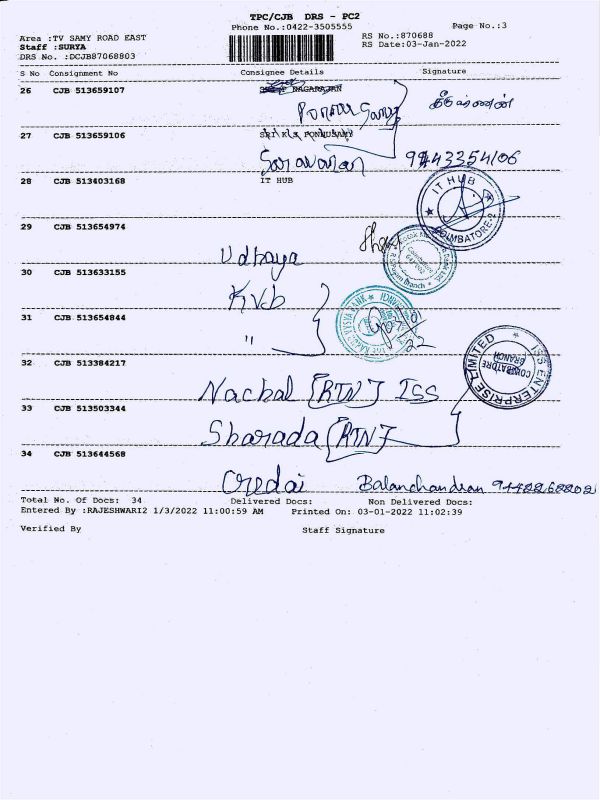 TPC/CJB DRS - PC2
Phone No.:0422-3505555
Page No.:3
Area :TV SAMY ROAD EAST
RS No.:870688
Staff :SURYA
RS Date:03-Jan-2022
DRS No. :DCJB87068803
S No Consignment No Consignee Details Signature
26 CJB 513659107 NAGARAJAN
27 CJB 513659106 SRI KLR PONNUSAMY
Saravanan 9943354106
28 CJB 513403168 IT HUB
IT HUB
COIMBATORE-2
29 CJB 513654974
Udhaya
30 CJB 513633155
KVB
31 CJB 513654844
"
32 CJB 513384217
ISS ENTERPRISE LIMITED
COIMBATORE
BRANCH
Nachal [RTN] ISS
33 CJB 513503344
Sharada [RTN]
34 CJB 513644568
Credai Balanchandran 9442268202
Total No. Of Docs: 34 Delivered Docs: Non Delivered Docs:
Entered By :RAJESHWARI2 1/3/2022 11:00:59 AM Printed On: 03-01-2022 11:02:39
Verified By Staff Signature